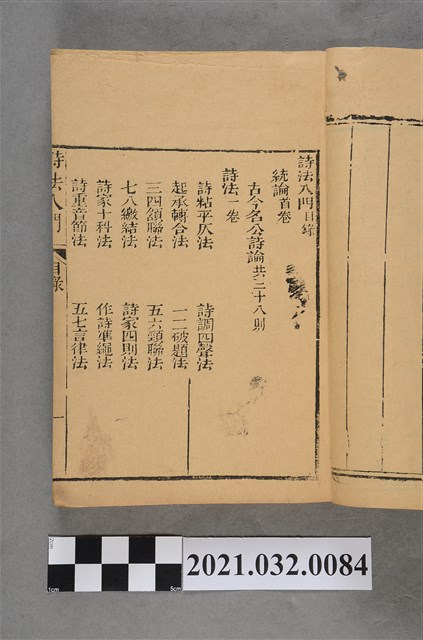 詩法入門目錄
統論首卷
古今名公詩論共三十八則
詩法一卷
詩粘平仄法 詩調四聲法
起承轉合法 一二破題法
三四頷聯法 五六頸聯法
七八繳結法 詩家四則法
詩家十科法 作詩準繩法
詩重音節法 五七言律法
詩法入門 目錄 一
2cm
1cm
5cm
2021.032.0084